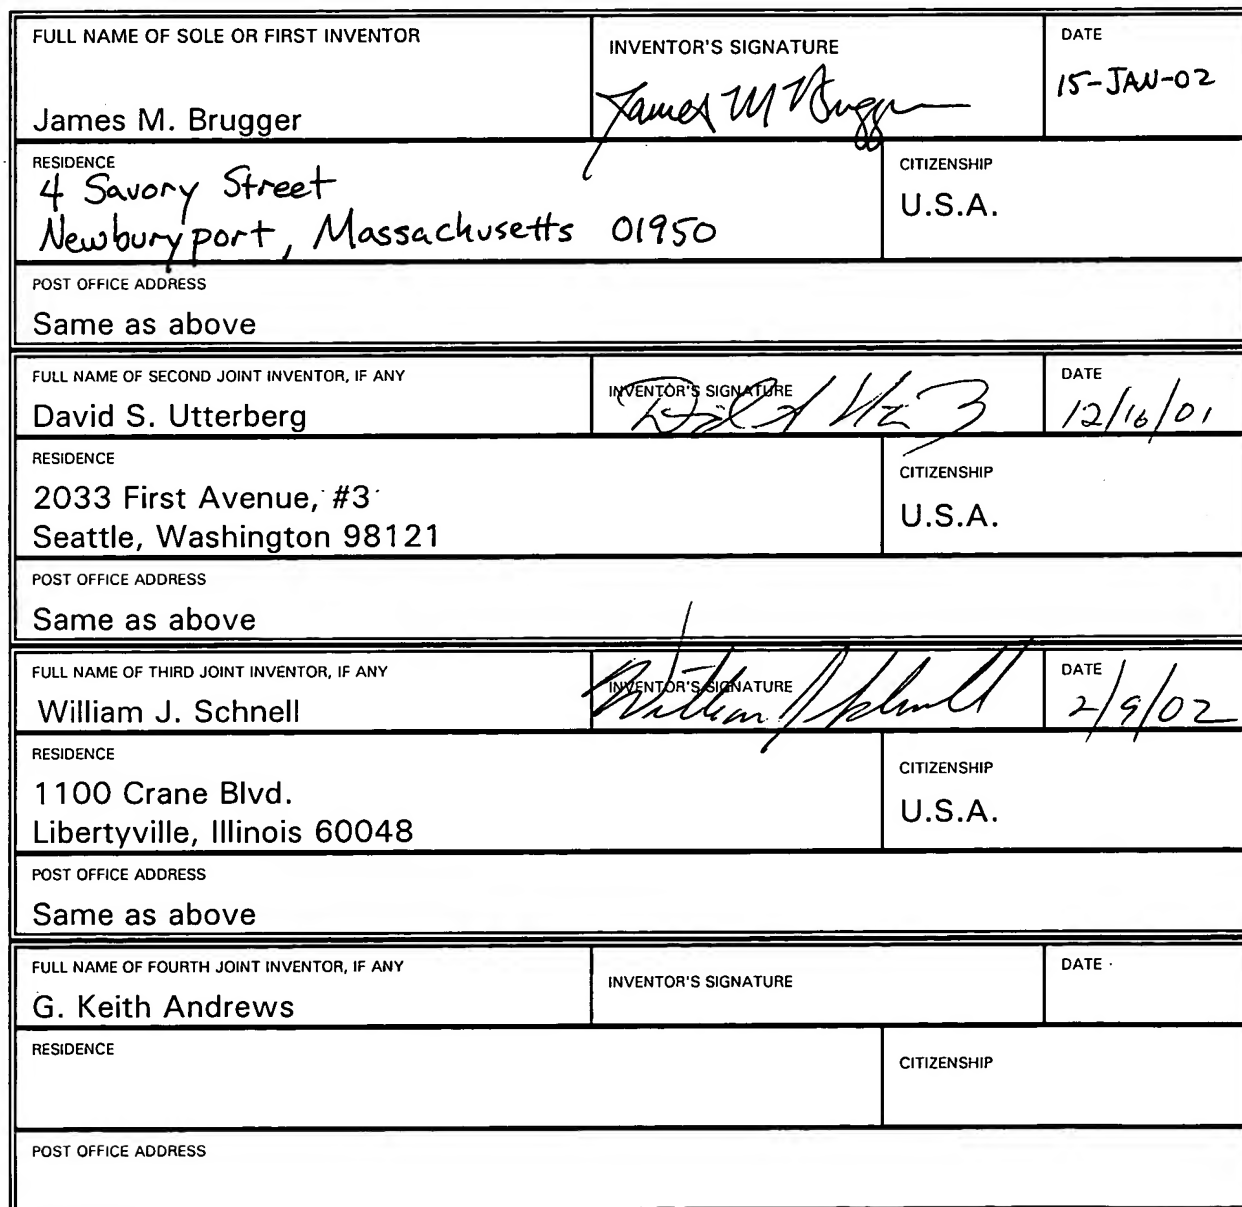 FULL NAME OF SOLE OR FIRST INVENTOR
James M. Brugger
INVENTOR'S SIGNATURE
James M Brugger
DATE
15-JAN-02
RESIDENCE
4 Savory Street
Newburyport, Massachusetts 01950
CITIZENSHIP
U.S.A.
POST OFFICE ADDRESS
Same as above
FULL NAME OF SECOND JOINT INVENTOR, IF ANY
David S. Utterberg
INVENTOR'S SIGNATURE
DATE
12/16/01
RESIDENCE
2033 First Avenue, #3
Seattle, Washington 98121
CITIZENSHIP
U.S.A.
POST OFFICE ADDRESS
Same as above
FULL NAME OF THIRD JOINT INVENTOR, IF ANY
William J. Schnell
INVENTOR'S SIGNATURE
William J Schnell
DATE
2/9/02
RESIDENCE
1100 Crane Blvd.
Libertyville, Illinois 60048
CITIZENSHIP
U.S.A.
POST OFFICE ADDRESS
Same as above
FULL NAME OF FOURTH JOINT INVENTOR, IF ANY
G. Keith Andrews
INVENTOR'S SIGNATURE
DATE
RESIDENCE
CITIZENSHIP
POST OFFICE ADDRESS